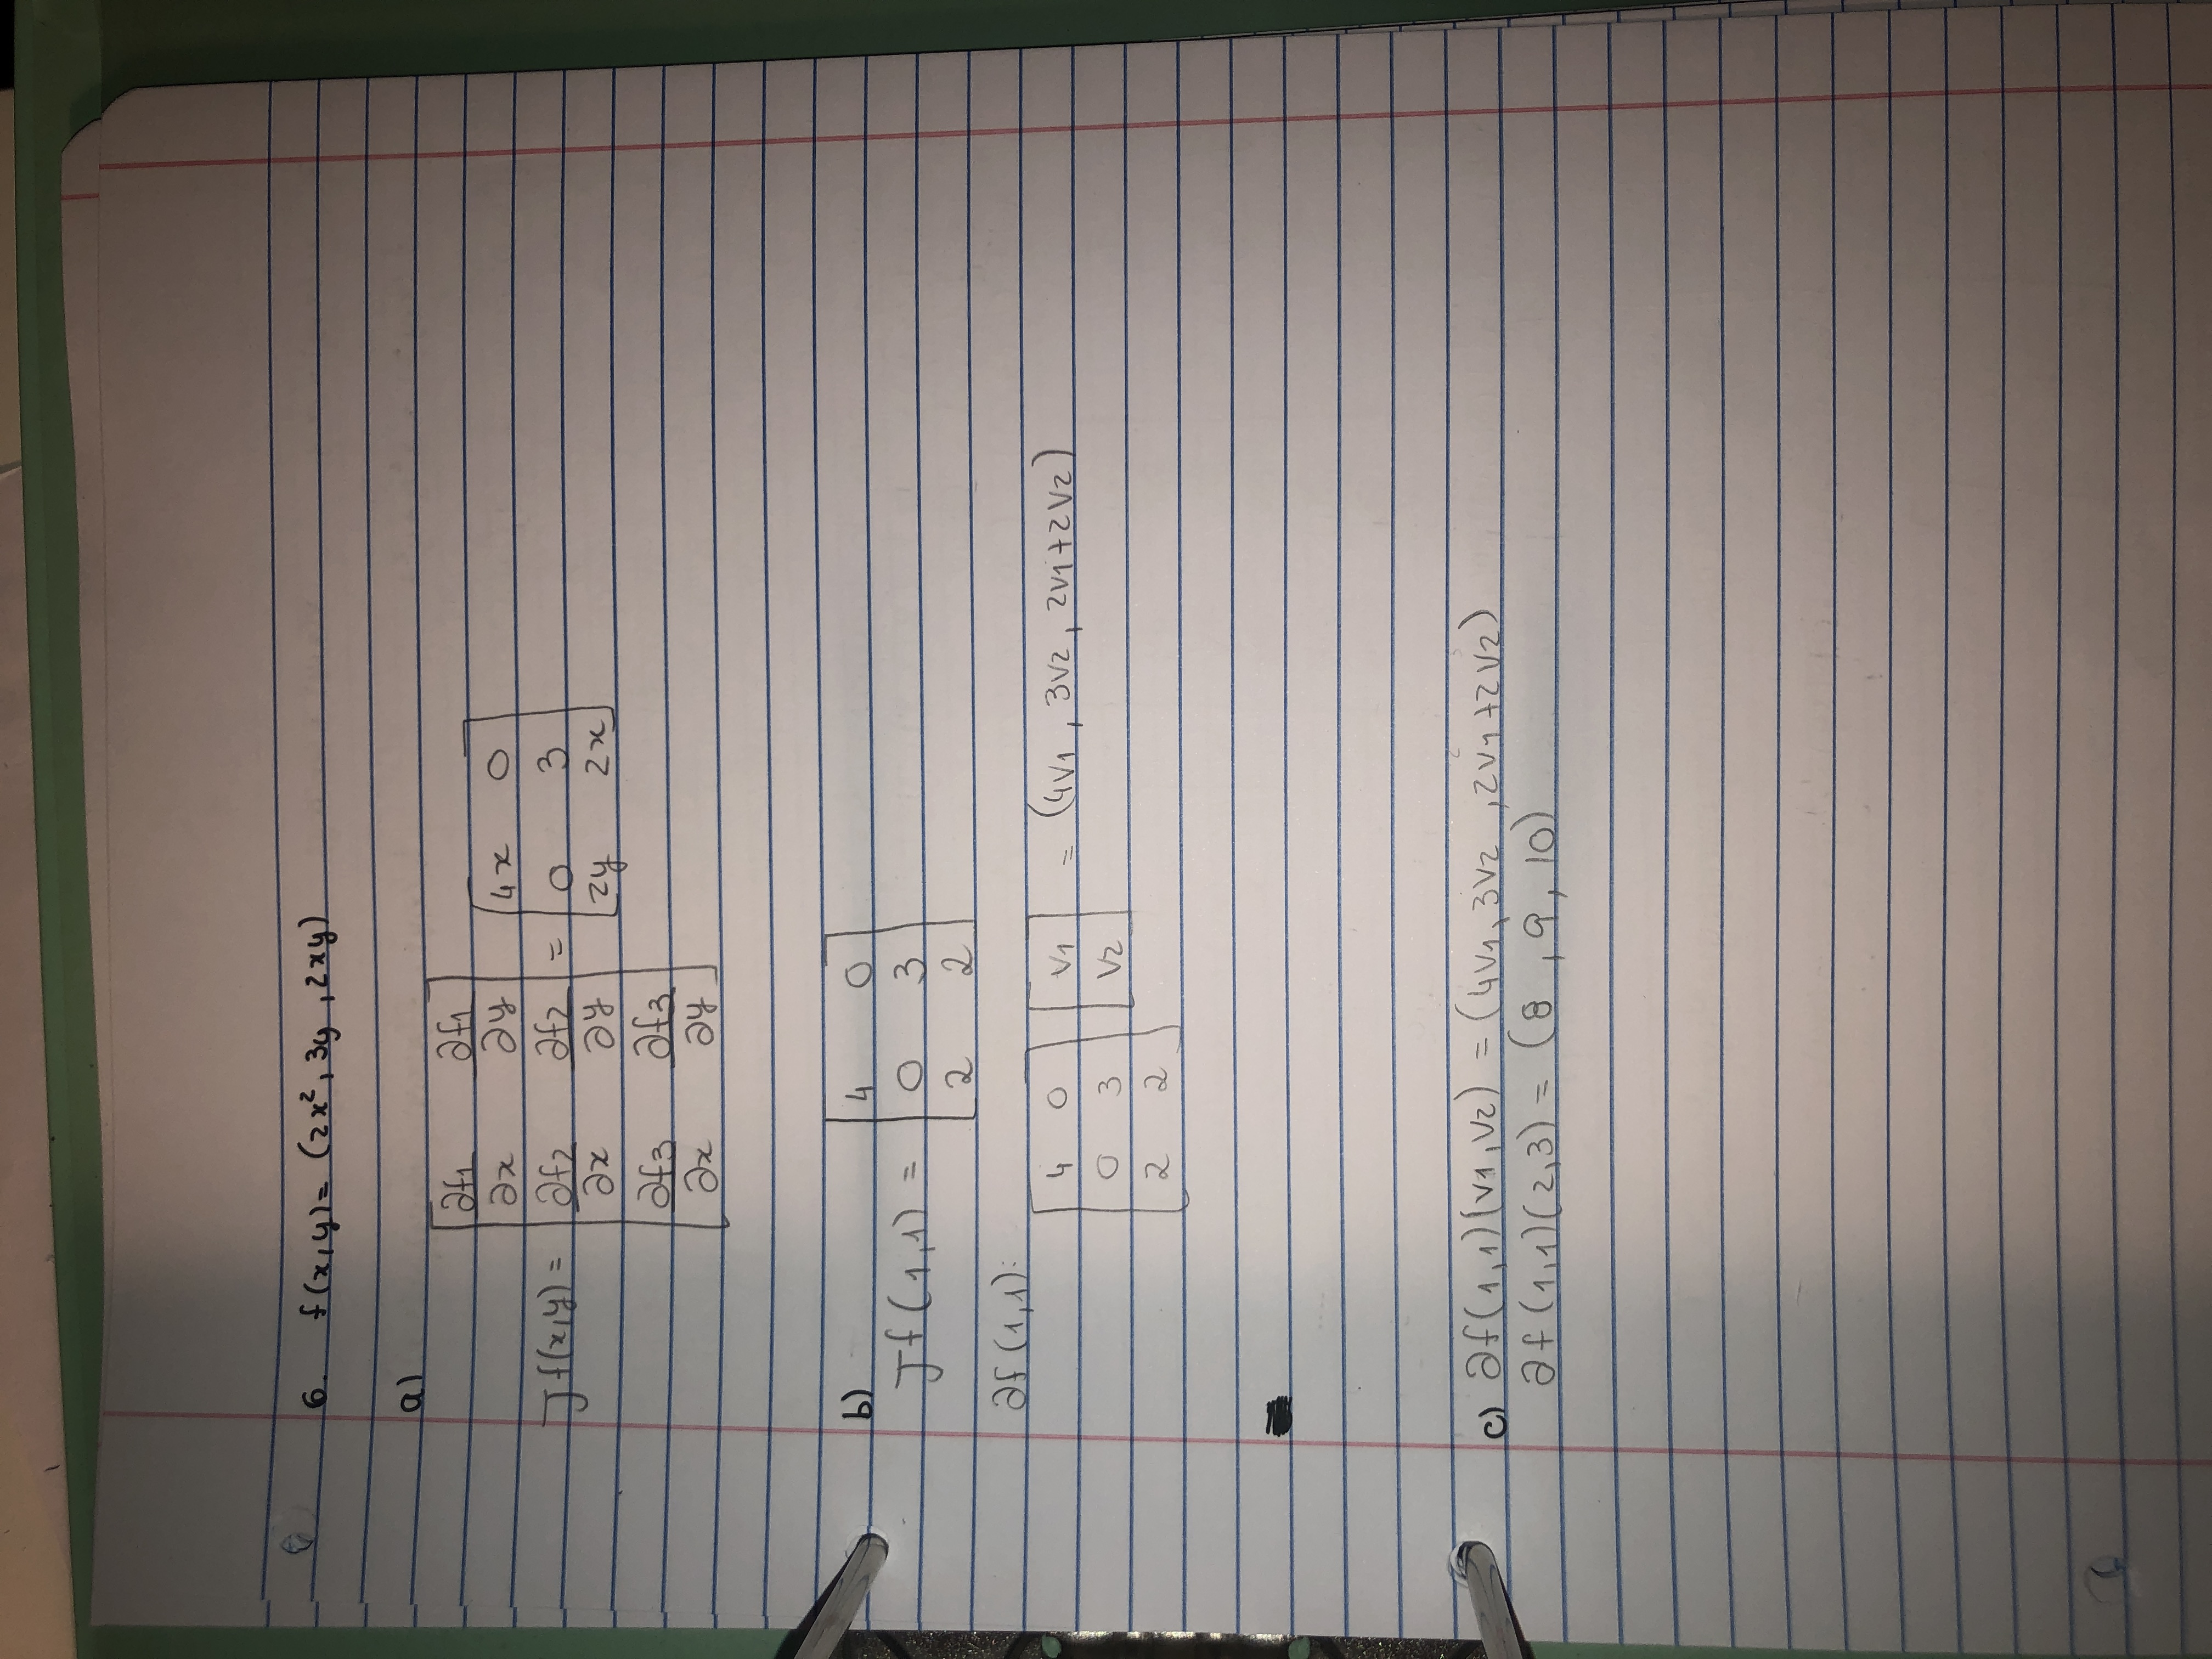 6. f(x,y)= (2x², 3y, 2xy)
a)
Jf(x,y) = [∂f1/∂x ∂f1/∂y
∂f2/∂x ∂f2/∂y
∂f3/∂x ∂f3/∂y] = [4x 0
0 3
2y 2x]
b)
Jf(1,1) = [4 0
0 3
2 2]
∂f(1,1):
[4 0
0 3
2 2] [v1
v2] = (4v1, 3v2, 2v1+2v2)
c) ∂f(1,1)(v1,v2) = (4v1, 3v2, 2v1+2v2)
∂f(1,1)(2,3) = (8, 9, 10)